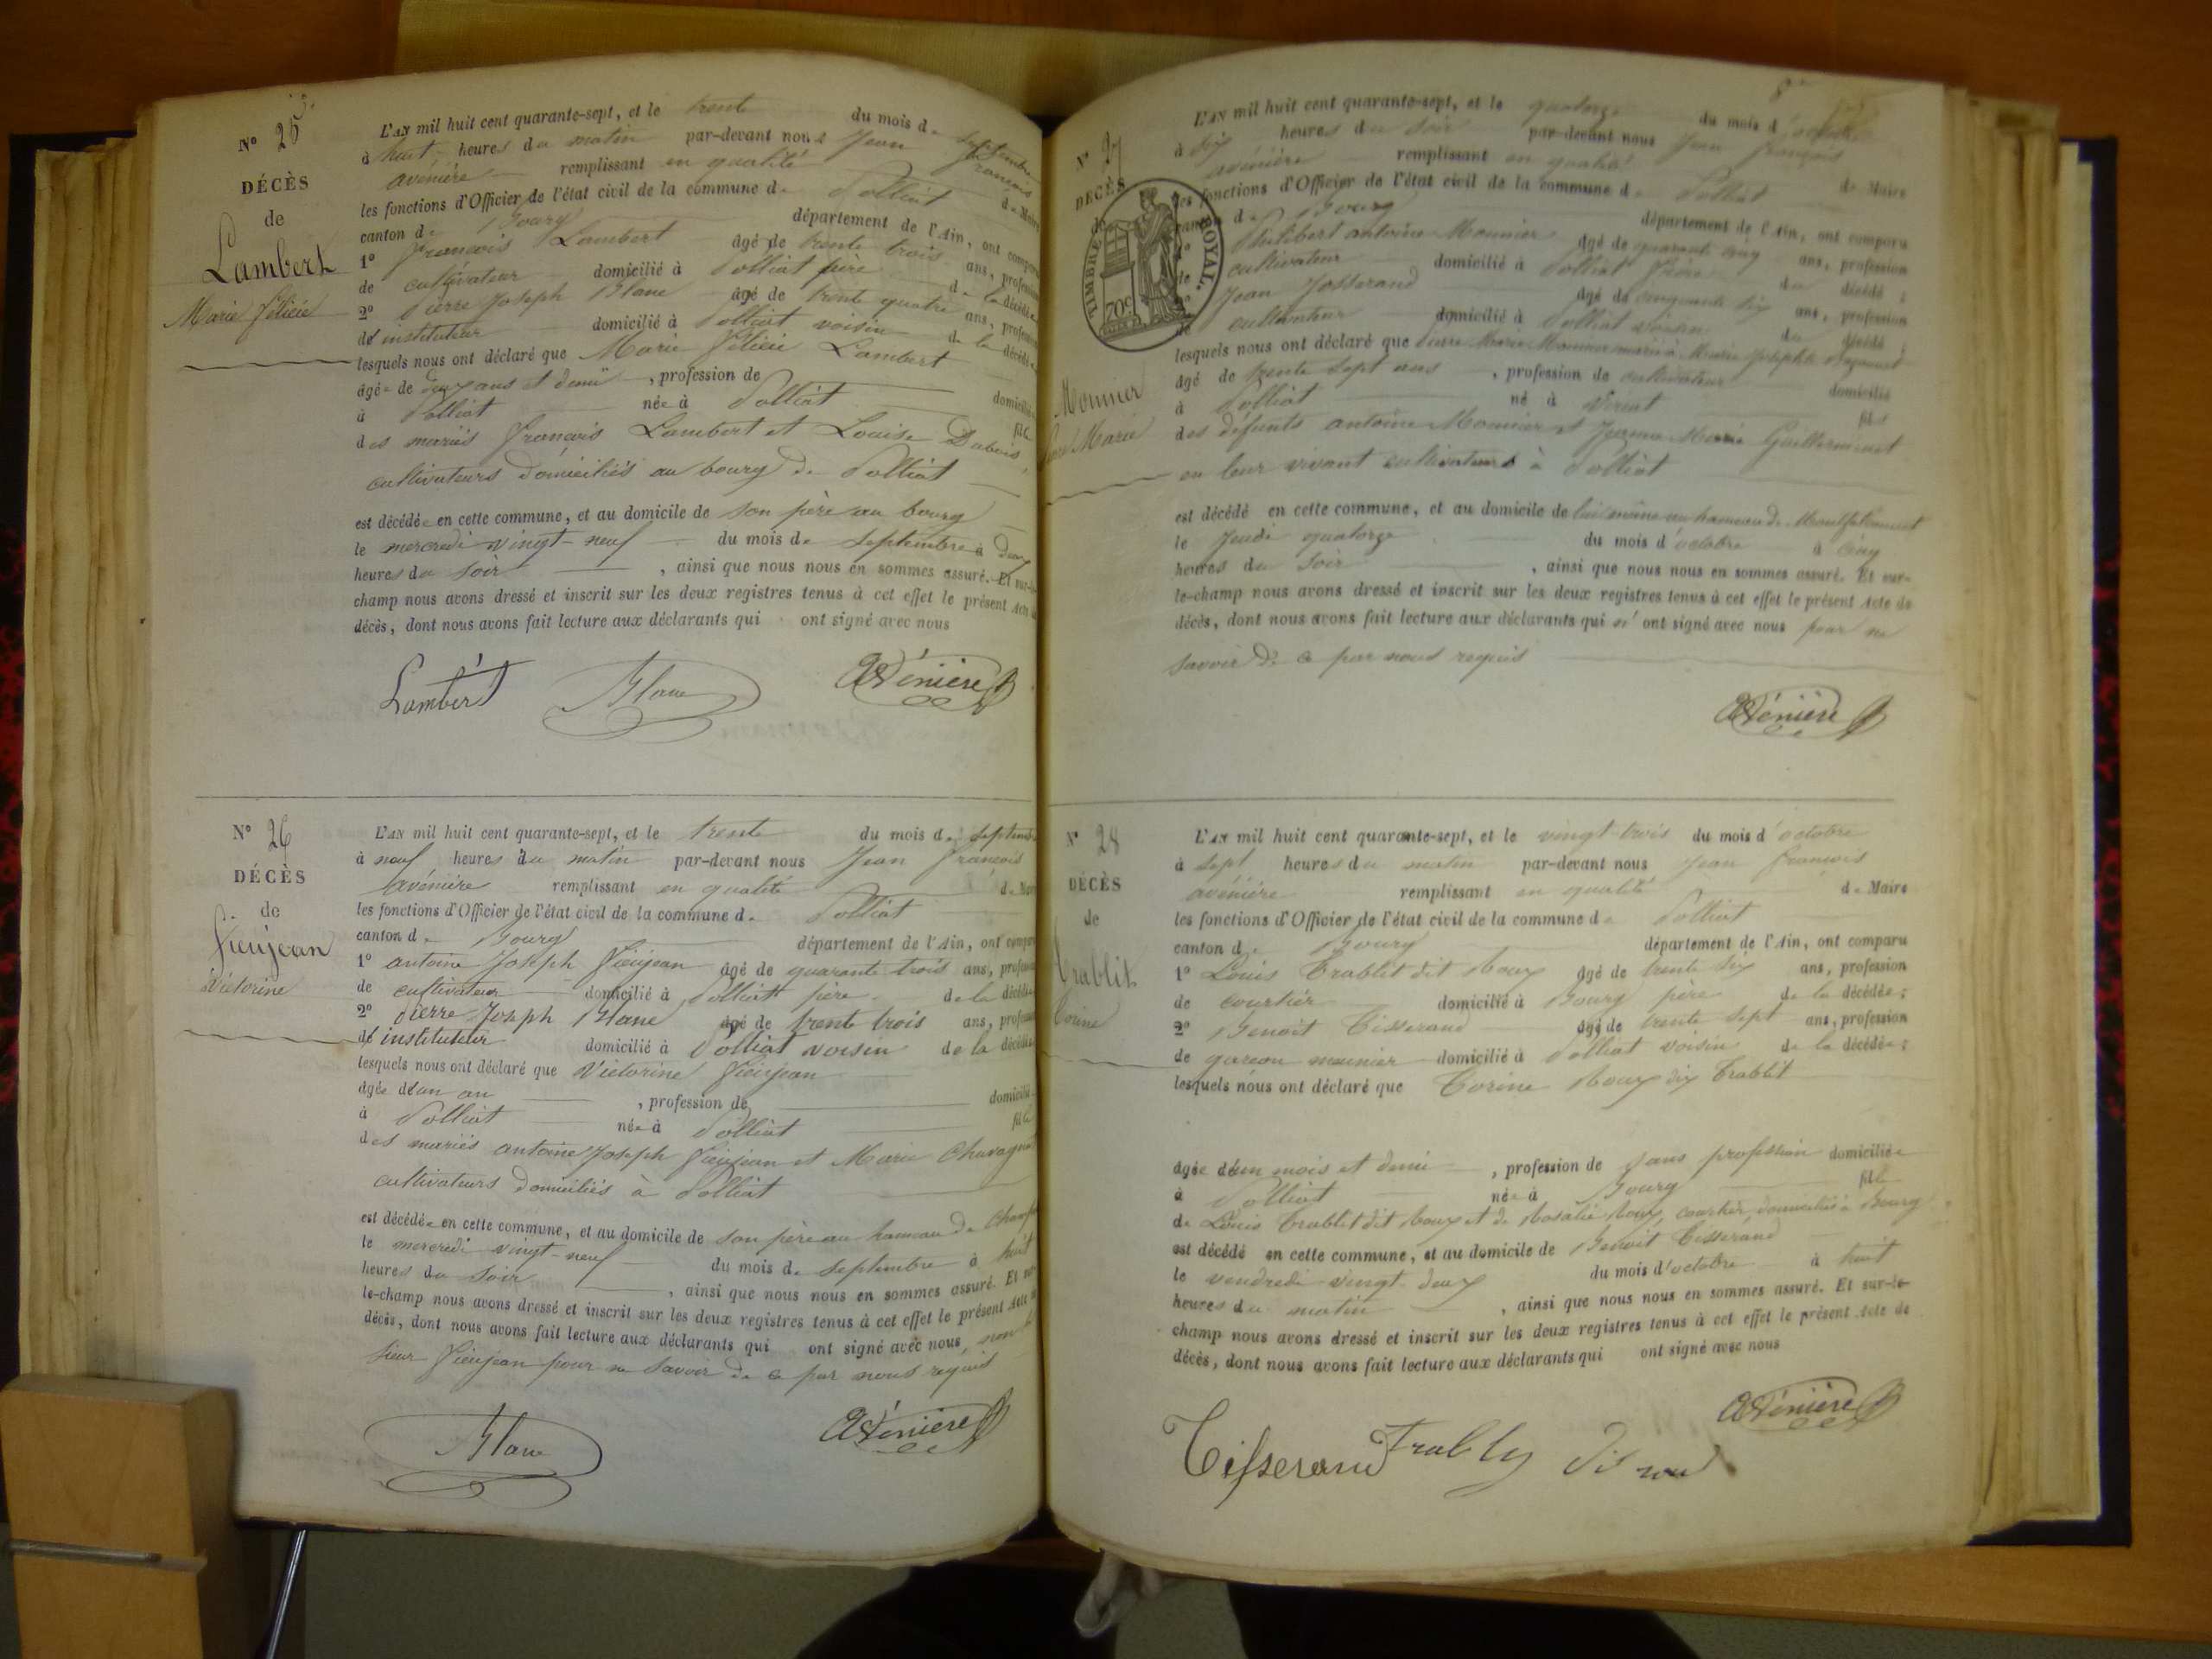 N° 25
DÉCÈS
de
Lambert
Marie Félicie
L'AN mil huit cent quarante-sept, et le trente du mois de septembre
à huit heures du matin par-devant nous Jean François
avénière remplissant en qualité de Maire
les fonctions d'Officier de l'état civil de la commune de Polliat
canton de Bourg département de l'Ain, ont comparu
1° François Lambert âgé de trente trois ans, profession
de cultivateur domicilié à Polliat père de la décédée
2° Pierre Joseph Blanc âgé de trente quatre ans, profession
de instituteur domicilié à Polliat voisin de la décédée
lesquels nous ont déclaré que Marie Félicie Lambert
âgée de deux ans et demi, profession de domiciliée
à Polliat née à Polliat fille
des mariés François Lambert et Louise Dubois,
cultivateurs domiciliés au bourg de Polliat
est décédée en cette commune, et au domicile de son père au bourg
le mercredi vingt-neuf du mois de septembre à deux
heures du soir, ainsi que nous nous en sommes assuré. Et sur-le-
champ nous avons dressé et inscrit sur les deux registres tenus à cet effet le présent Acte de
décès, dont nous avons fait lecture aux déclarants qui ont signé avec nous
Lambert Blanc Avénière
N° 26
DÉCÈS
de
Fieujean
Victorine
L'AN mil huit cent quarante-sept, et le trente du mois de septembre
à neuf heures du matin par-devant nous Jean François
avénière remplissant en qualité de Maire
les fonctions d'Officier de l'état civil de la commune de Polliat
canton de Bourg département de l'Ain, ont comparu
1° antoine Joseph Fieujean âgé de quarante trois ans, profession
de cultivateur domicilié à Polliat père de la décédée
2° Pierre Joseph Blanc âgé de trente trois ans, profession
de instituteur domicilié à Polliat voisin de la décédée
lesquels nous ont déclaré que Victorine Fieujean
âgée d'un an, profession de domiciliée
à Polliat née à Polliat fille
des mariés antoine Joseph Fieujean et Marie
cultivateurs domiciliés à Polliat
est décédée en cette commune, et au domicile de son père au hameau de
le mercredi vingt-neuf du mois de septembre à huit
heures du soir, ainsi que nous nous en sommes assuré. Et sur-
le-champ nous avons dressé et inscrit sur les deux registres tenus à cet effet le présent Acte de
décès, dont nous avons fait lecture aux déclarants qui ont signé avec nous, non le
sieur Fieujean pour ne savoir de ce par nous requis
Blanc Avénière
N° 27
DÉCÈS
de
TIMBRE ROYAL.
70c
Monnier
Marie
L'AN mil huit cent quarante-sept, et le quatorze du mois d'octobre
à six heures du soir par-devant nous Jean François
avénière remplissant en qualité de Maire
les fonctions d'Officier de l'état civil de la commune de Polliat
canton de Bourg département de l'Ain, ont comparu
1° Philibert antoine Monnier âgé de quarante cinq ans, profession
de cultivateur domicilié à Polliat frère du décédé;
2° Jean Josserand âgé de cinquante six ans, profession
de cultivateur domicilié à Polliat voisin du décédé;
lesquels nous ont déclaré que Pierre Marie Monnier marié à Marie Josephte
âgé de trente sept ans, profession de cultivateur domicilié
à Polliat né à Viriat fils
des défunts antoine Monnier et Jeanne Marie Guillerminet
en leur vivant cultivateurs à Polliat
est décédé en cette commune, et au domicile de lui même au hameau de
le Jeudi quatorze du mois d'octobre à cinq
heures du soir, ainsi que nous nous en sommes assuré. Et sur-
le-champ nous avons dressé et inscrit sur les deux registres tenus à cet effet le présent Acte de
décès, dont nous avons fait lecture aux déclarants qui n'ont signé avec nous pour ne
savoir de ce par nous requis
Avénière
N° 28
DÉCÈS
de
Trablit
Corine
L'AN mil huit cent quarante-sept, et le vingt-trois du mois d'octobre
à sept heures du matin par-devant nous Jean François
avénière remplissant en qualité de Maire
les fonctions d'Officier de l'état civil de la commune de Polliat
canton de Bourg département de l'Ain, ont comparu
1° Louis Trablit dit Roux âgé de trente six ans, profession
de courtier domicilié à Bourg père de la décédée;
2° Benoit Tisserand âgé de trente sept ans, profession
de garçon meunier domicilié à Polliat voisin de la décédée;
lesquels nous ont déclaré que Corine Roux dix Trablit
âgée d'un mois et demi, profession de sans profession domiciliée
à Polliat née à Bourg fille
de Louis Trablit dit Roux et de Rosalie Roux, courtier, domiciliés à Bourg
est décédé en cette commune, et au domicile de Benoit Tisserand
le vendredi vingt-deux du mois d'octobre à huit
heures du matin, ainsi que nous nous en sommes assuré. Et sur-le-
champ nous avons dressé et inscrit sur les deux registres tenus à cet effet le présent Acte de
décès, dont nous avons fait lecture aux déclarants qui ont signé avec nous
Avénière
Tisserand